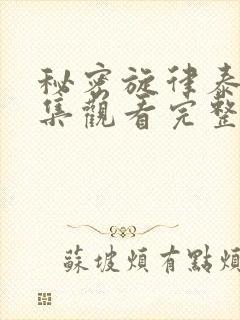 秘密旋律泰
集觀看完整
蘇坡煩有點煩